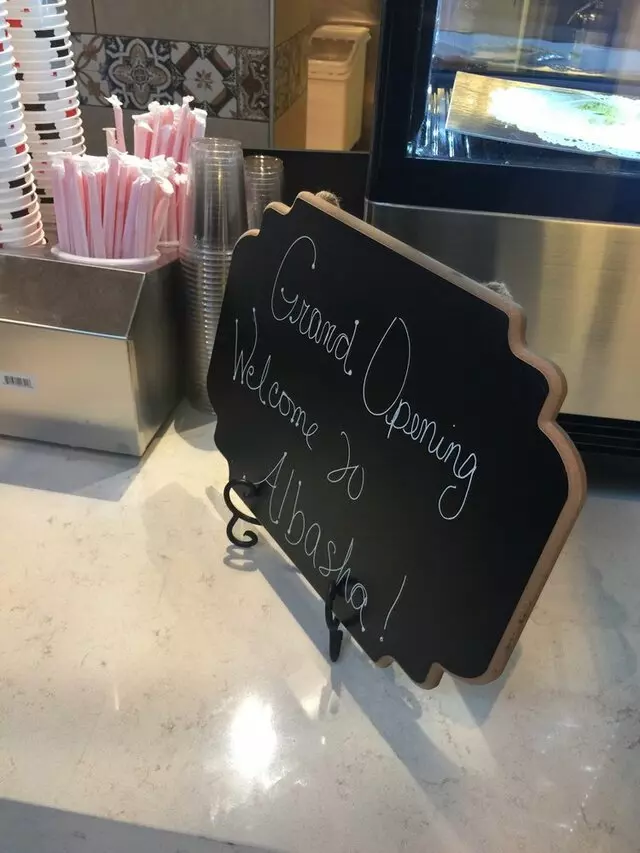 Grand Opening
Welcome to
Albasha!